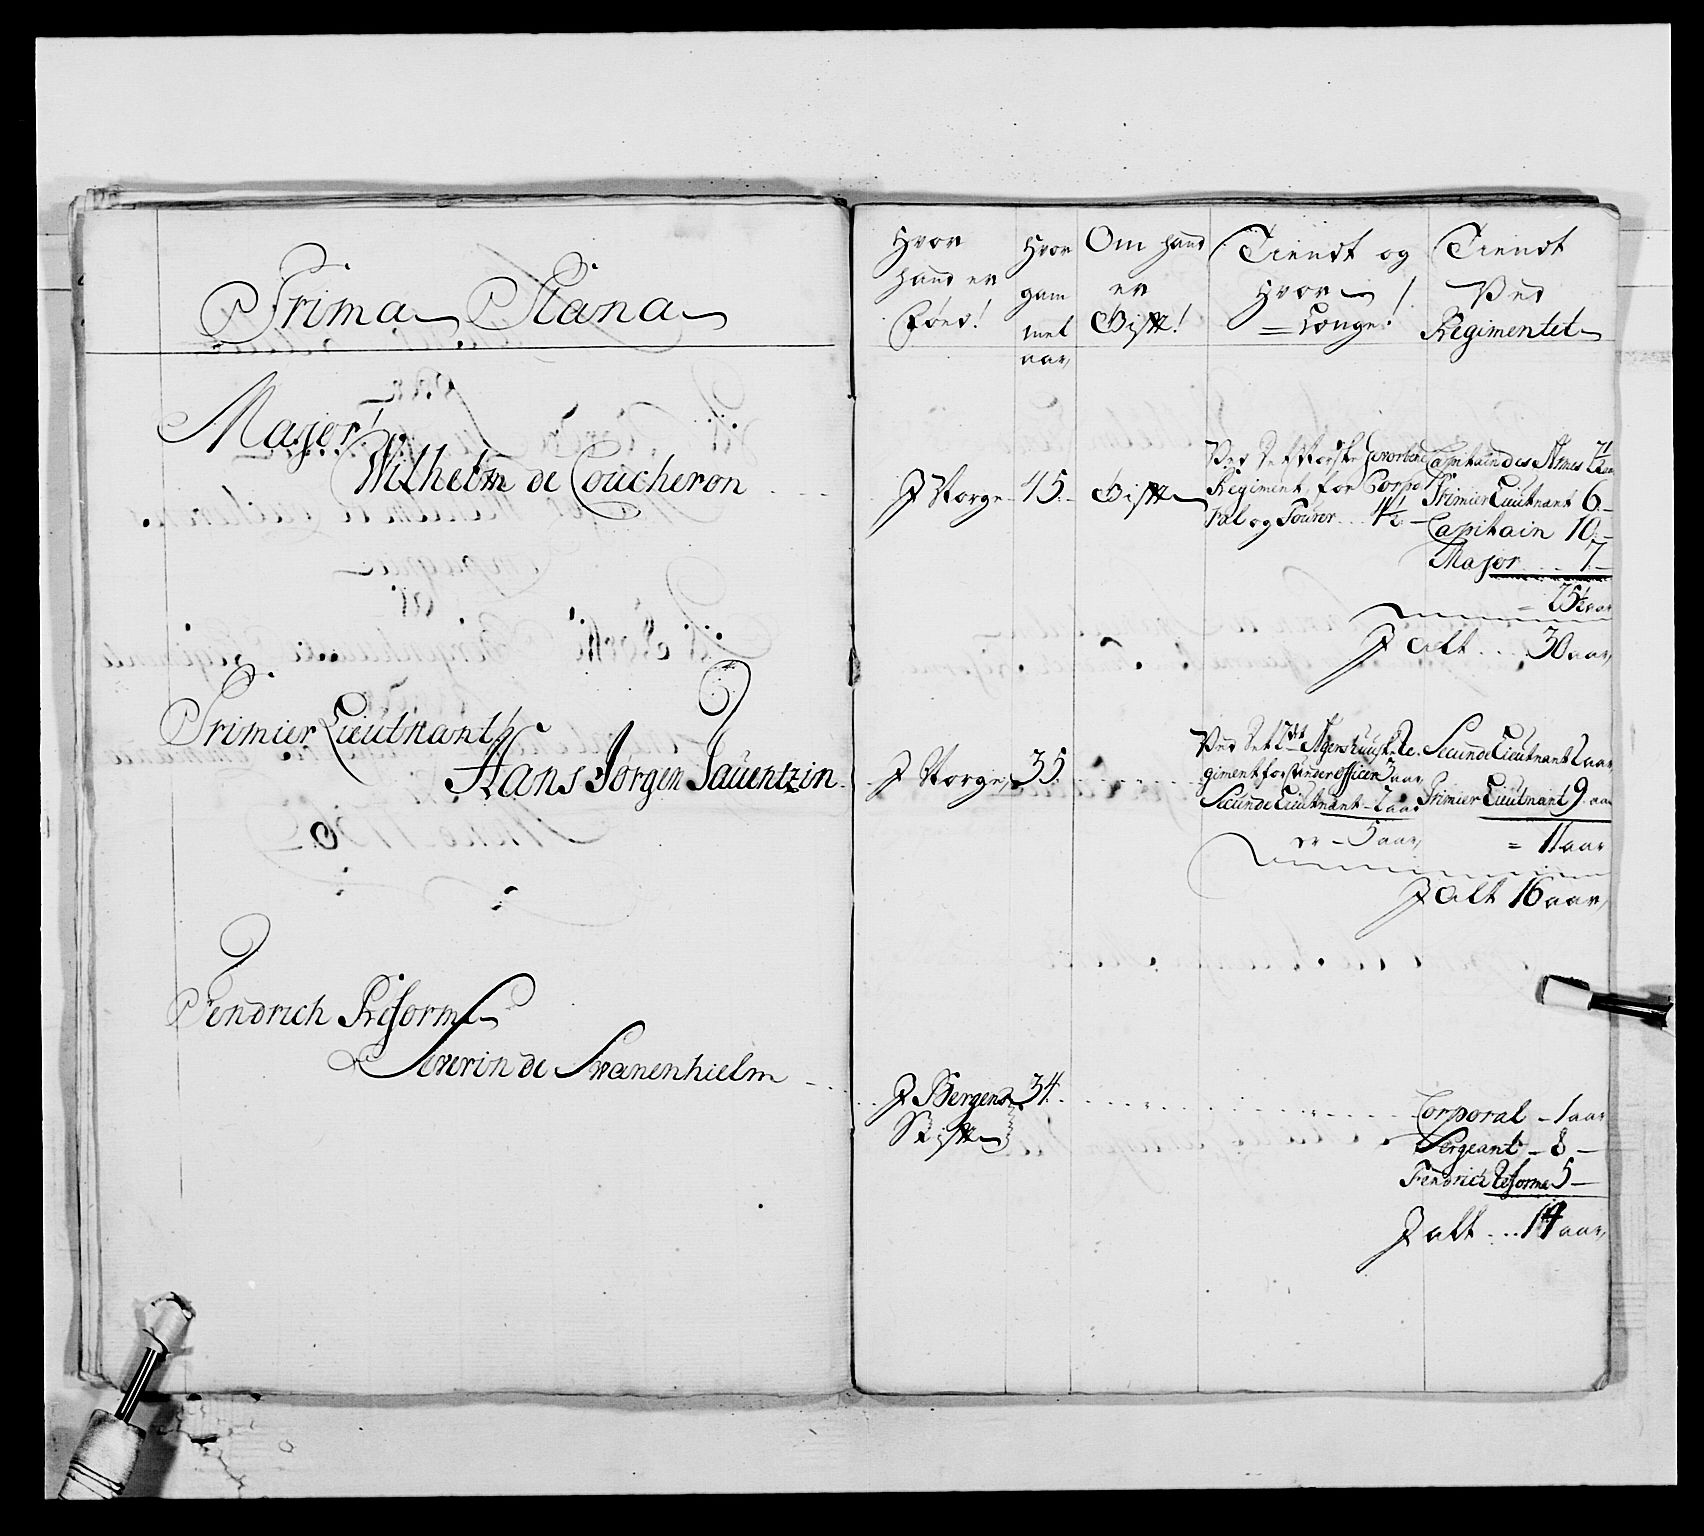 Prima Plana
Major
Wilhelm de Coucheron
Primier Lieutnant
Hans Jørgen Pauentzin
Fendrich Reforme
Severin de Svanenhielm
Hvor
hand er
Føed!
Hvor
gam
mel
aar
Om hand
er
Gift!
Tiendt og
Hvor
Længe!
Tiendt
Ved
Regimentet
J Norge 45. Gift
Ved det Norske hvervede
Regiment for Corpo-
ral og Fourer 4½
Capitain des Armes 2½ aar
Primier Lieutnant 6
Capitain 10
Major 7
= 25½ aar
J alt 30 aar
J Norge 35
Ved det 2det Agershuusk: Re-
giment for Underofficer 3 aar
Secunde Lieutnant 2 aar
er 5 aar
Secunde Lieutnant 2 aar
Primier Lieutnant 9 aar
= 11 aar
J alt 16 aar
J Bergens 34
Stift
Corporal 1 aar
Sergeant 8
Fendrich Reforme 5
J alt 14 aar